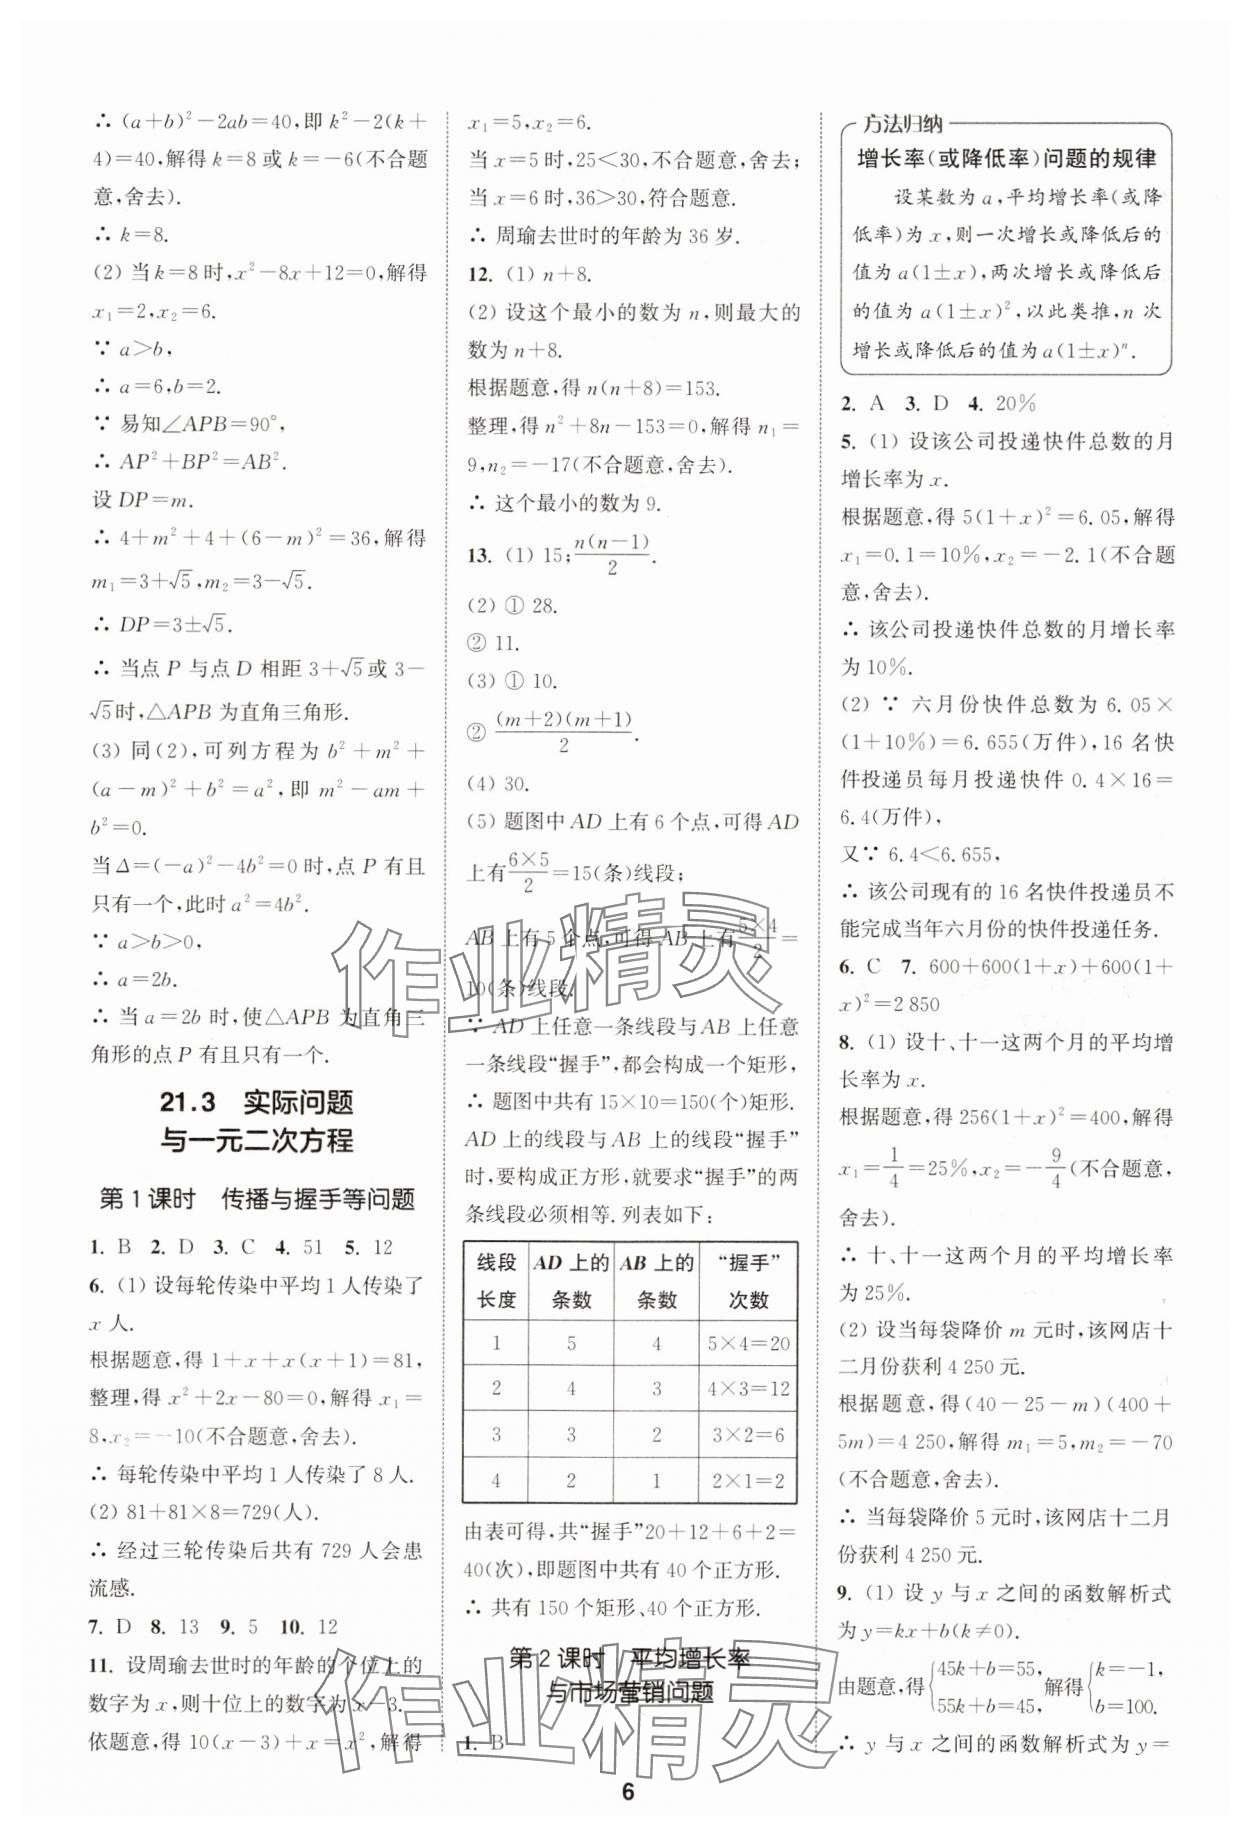 ∴ (a+b)²-2ab=40,即 k²-2(k+
4)=40,解得 k=8 或 k=-6(不合题
意,舍去).
∴ k=8.
(2) 当 k=8 时,x²-8x+12=0,解得
x₁=2,x₂=6.
∵ a>b,
∴ a=6,b=2.
∵ 易知∠APB=90°,
∴ AP²+BP²=AB².
设 DP=m.
∴ 4+m²+4+(6-m)²=36,解得
m₁=3+√5,m₂=3-√5.
∴ DP=3±√5.
∴ 当点 P 与点 D 相距 3+√5或 3-
√5时,△APB 为直角三角形.
(3) 同(2),可列方程为 b²+m²+
(a-m)²+b²=a²,即 m²-am+
b²=0.
当 Δ=(-a)²-4b²=0 时,点 P 有且
只有一个,此时 a²=4b².
∵ a>b>0,
∴ a=2b.
∴ 当 a=2b 时,使△APB 为直角三
角形的点 P 有且只有一个.
21.3 实际问题
与一元二次方程
第 1 课时 传播与握手等问题
1. B 2. D 3. C 4. 51 5. 12
6. (1) 设每轮传染中平均 1 人传染了
x 人.
根据题意,得 1+x+x(x+1)=81,
整理,得 x²+2x-80=0,解得 x₁=
8,x₂=-10(不合题意,舍去).
∴ 每轮传染中平均 1 人传染了 8 人.
(2) 81+81×8=729(人).
∴ 经过三轮传染后共有 729 人会患
流感.
7. D 8. 13 9. 5 10. 12
11. 设周瑜去世时的年龄的个位上的
数字为 x,则十位上的数字为 x-3.
依题意,得 10(x-3)+x=x²,解得
x₁=5,x₂=6.
当 x=5 时,25<30,不合题意,舍去;
当 x=6 时,36>30,符合题意.
∴ 周瑜去世时的年龄为 36 岁.
12. (1) n+8.
(2) 设这个最小的数为 n,则最大的
数为 n+8.
根据题意,得 n(n+8)=153.
整理,得 n²+8n-153=0,解得 n₁=
9,n₂=-17(不合题意,舍去).
∴ 这个最小的数为 9.
13. (1) 15;n(n-1)/2.
(2) ① 28.
② 11.
(3) ① 10.
② (m+2)(m+1)/2.
(4) 30.
(5) 题图中 AD 上有 6 个点,可得 AD
上有6×5/2=15(条)线段;
AB 上有 5 个点,可得 AB 上有5×4/2=
10(条)线段.
∵ AD 上任意一条线段与 AB 上任意
一条线段“握手”,都会构成一个矩形,
∴ 题图中共有 15×10=150(个)矩形.
AD 上的线段与 AB 上的线段“握手”
时,要构成正方形,就要求“握手”的两
条线段必须相等. 列表如下:
线段长度 AD 上的条数 AB 上的条数 “握手”次数
1 5 4 5×4=20
2 4 3 4×3=12
3 3 2 3×2=6
4 2 1 2×1=2
由表可得,共“握手”20+12+6+2=
40(次),即题图中共有 40 个正方形.
∴ 共有 150 个矩形、40 个正方形.
第 2 课时 平均增长率
与市场营销问题
1. B
方法归纳
增长率(或降低率)问题的规律
设某数为 a,平均增长率(或降
低率)为 x,则一次增长或降低后的
值为 a(1±x),两次增长或降低后
的值为 a(1±x)²,以此类推,n 次
增长或降低后的值为 a(1±x)ⁿ.
2. A 3. D 4. 20%
5. (1) 设该公司投递快件总数的月
增长率为 x.
根据题意,得 5(1+x)²=6.05,解得
x₁=0.1=10%,x₂=-2.1(不合题
意,舍去).
∴ 该公司投递快件总数的月增长率
为 10%.
(2) ∵ 六月份快件总数为 6.05×
(1+10%)=6.655(万件),16 名快
件投递员每月投递快件 0.4×16=
6.4(万件),
又∵ 6.4<6.655,
∴ 该公司现有的 16 名快件投递员不
能完成当年六月份的快件投递任务.
6. C 7. 600+600(1+x)+600(1+
x)²=2 850
8. (1) 设十、十一这两个月的平均增
长率为 x.
根据题意,得 256(1+x)²=400,解得
x₁=1/4=25%,x₂=-9/4(不合题意,
舍去).
∴ 十、十一这两个月的平均增长率
为 25%.
(2) 设当每袋降价 m 元时,该网店十
二月份获利 4 250 元.
根据题意,得(40-25-m)(400+
5m)=4 250,解得 m₁=5,m₂=-70
(不合题意,舍去).
∴ 当每袋降价 5 元时,该网店十二月
份获利 4 250 元.
9. (1) 设 y 与 x 之间的函数解析式
为 y=kx+b(k≠0).
由题意,得{45k+b=55, 55k+b=45, 解得{k=-1, b=100.
∴ y 与 x 之间的函数解析式为 y=
6
作业精灵
作业精灵